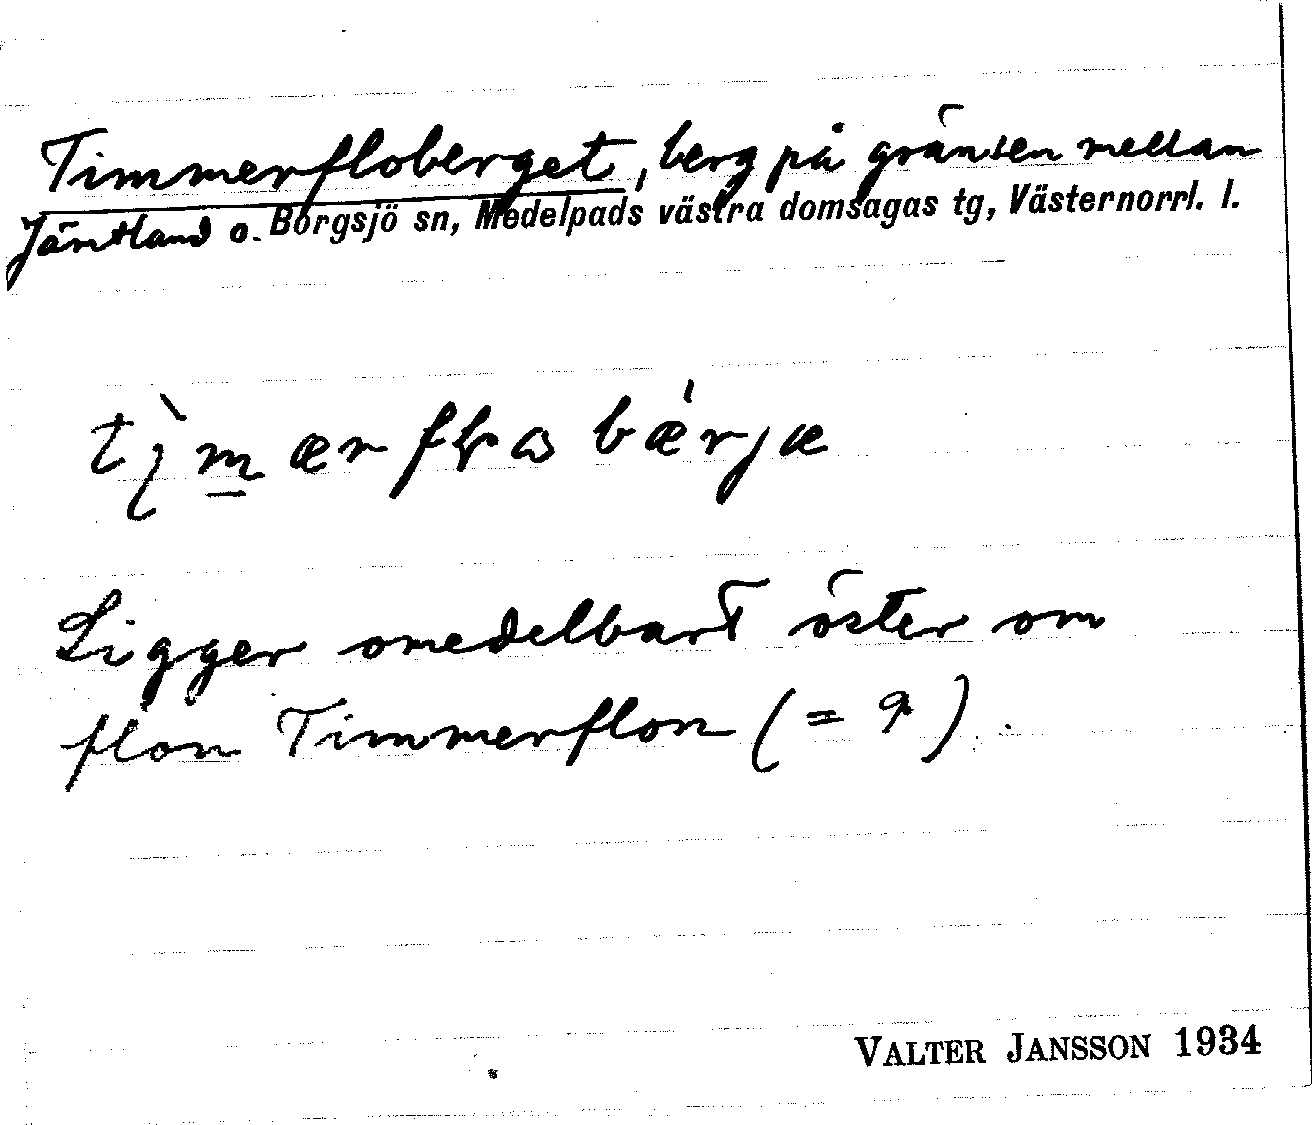 Timmerfloberget, berg på gränsen mellan
Jämtland o. Borgsjö sn, Medelpads västra domsagas tg, Västernorrl. l.
Ligger omedelbart öster om
flon Timmerflon (= q)
VALTER JANSSON 1934